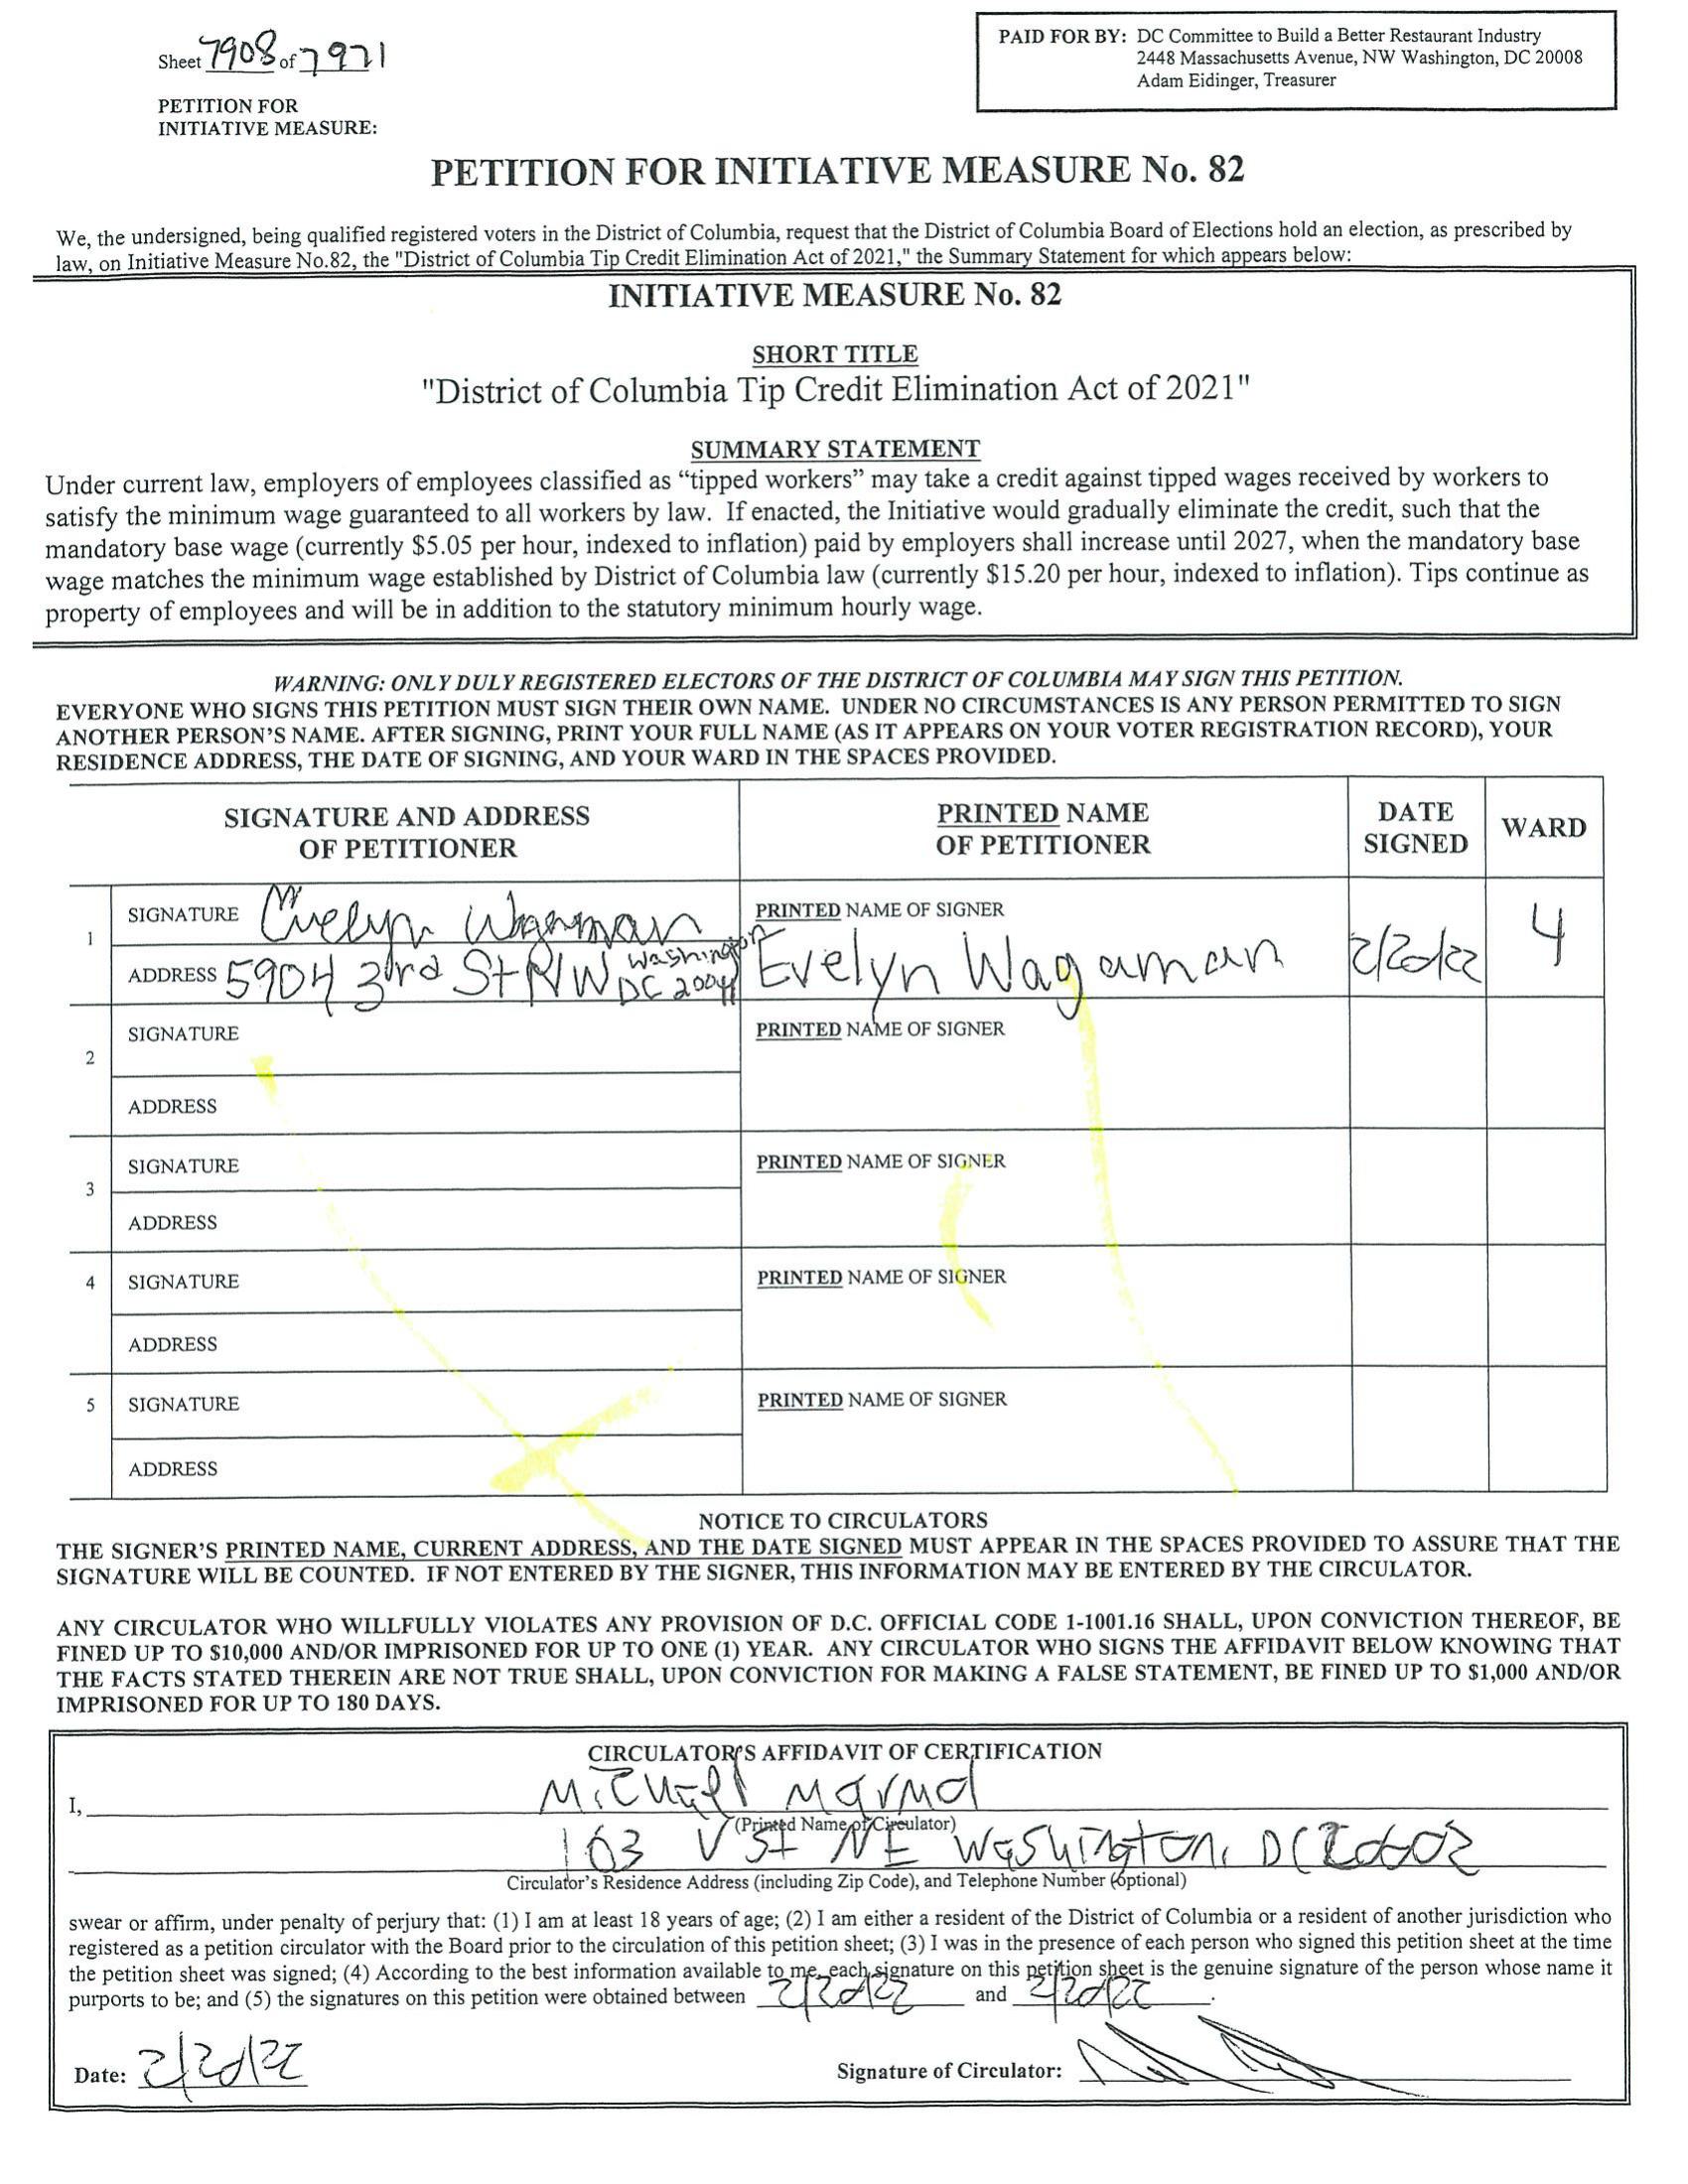 Sheet 7908 of 7971
PAID FOR BY: DC Committee to Build a Better Restaurant Industry
2448 Massachusetts Avenue, NW Washington, DC 20008
Adam Eidinger, Treasurer
PETITION FOR
INITIATIVE MEASURE:
PETITION FOR INITIATIVE MEASURE No. 82
We, the undersigned, being qualified registered voters in the District of Columbia, request that the District of Columbia Board of Elections hold an election, as prescribed by
law, on Initiative Measure No.82, the "District of Columbia Tip Credit Elimination Act of 2021," the Summary Statement for which appears below:
INITIATIVE MEASURE No. 82
SHORT TITLE
"District of Columbia Tip Credit Elimination Act of 2021"
SUMMARY STATEMENT
Under current law, employers of employees classified as “tipped workers” may take a credit against tipped wages received by workers to
satisfy the minimum wage guaranteed to all workers by law. If enacted, the Initiative would gradually eliminate the credit, such that the
mandatory base wage (currently $5.05 per hour, indexed to inflation) paid by employers shall increase until 2027, when the mandatory base
wage matches the minimum wage established by District of Columbia law (currently $15.20 per hour, indexed to inflation). Tips continue as
property of employees and will be in addition to the statutory minimum hourly wage.
WARNING: ONLY DULY REGISTERED ELECTORS OF THE DISTRICT OF COLUMBIA MAY SIGN THIS PETITION.
EVERYONE WHO SIGNS THIS PETITION MUST SIGN THEIR OWN NAME. UNDER NO CIRCUMSTANCES IS ANY PERSON PERMITTED TO SIGN
ANOTHER PERSON'S NAME. AFTER SIGNING, PRINT YOUR FULL NAME (AS IT APPEARS ON YOUR VOTER REGISTRATION RECORD), YOUR
RESIDENCE ADDRESS, THE DATE OF SIGNING, AND YOUR WARD IN THE SPACES PROVIDED.
SIGNATURE AND ADDRESS
OF PETITIONER
PRINTED NAME
OF PETITIONER
DATE
SIGNED
WARD
1
SIGNATURE Evelyn Wagaman
ADDRESS 5904 3rd St NW Washington
DC 20011
PRINTED NAME OF SIGNER
Evelyn Wagaman
2/20/22
4
2
SIGNATURE
ADDRESS
PRINTED NAME OF SIGNER
3
SIGNATURE
ADDRESS
PRINTED NAME OF SIGNER
4
SIGNATURE
ADDRESS
PRINTED NAME OF SIGNER
5
SIGNATURE
ADDRESS
PRINTED NAME OF SIGNER
NOTICE TO CIRCULATORS
THE SIGNER'S PRINTED NAME, CURRENT ADDRESS, AND THE DATE SIGNED MUST APPEAR IN THE SPACES PROVIDED TO ASSURE THAT THE
SIGNATURE WILL BE COUNTED. IF NOT ENTERED BY THE SIGNER, THIS INFORMATION MAY BE ENTERED BY THE CIRCULATOR.
ANY CIRCULATOR WHO WILLFULLY VIOLATES ANY PROVISION OF D.C. OFFICIAL CODE 1-1001.16 SHALL, UPON CONVICTION THEREOF, BE
FINED UP TO $10,000 AND/OR IMPRISONED FOR UP TO ONE (1) YEAR. ANY CIRCULATOR WHO SIGNS THE AFFIDAVIT BELOW KNOWING THAT
THE FACTS STATED THEREIN ARE NOT TRUE SHALL, UPON CONVICTION FOR MAKING A FALSE STATEMENT, BE FINED UP TO $1,000 AND/OR
IMPRISONED FOR UP TO 180 DAYS.
CIRCULATOR'S AFFIDAVIT OF CERTIFICATION
I, Michael
(Printed Name of Circulator)
103 V St NE Washington, DC 20002
Circulator's Residence Address (including Zip Code), and Telephone Number (optional)
swear or affirm, under penalty of perjury that: (1) I am at least 18 years of age; (2) I am either a resident of the District of Columbia or a resident of another jurisdiction who
registered as a petition circulator with the Board prior to the circulation of this petition sheet; (3) I was in the presence of each person who signed this petition sheet at the time
the petition sheet was signed; (4) According to the best information available to me, each signature on this petition sheet is the genuine signature of the person whose name it
purports to be; and (5) the signatures on this petition were obtained between 2/20/22 and 2/20/22.
Date: 2/20/22
Signature of Circulator: